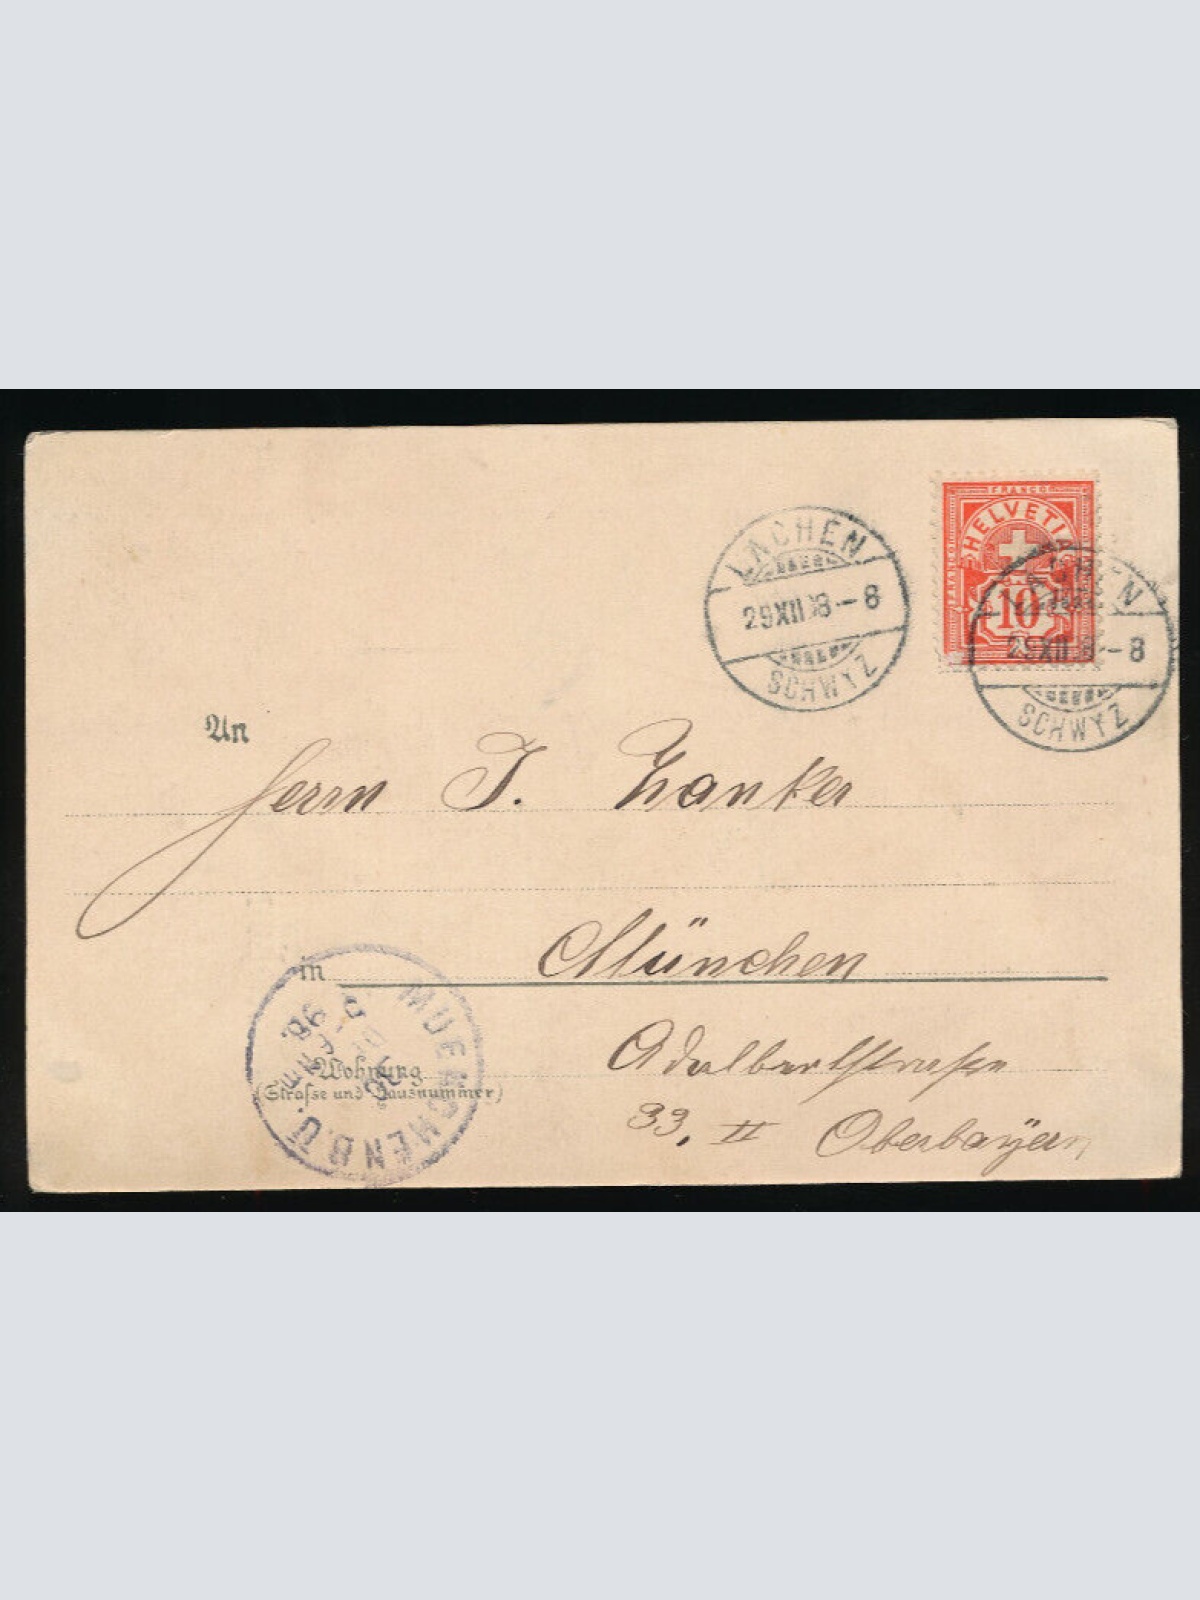 FRANCO
HELVETIA
10
LACHEN
29 XII 98 – 8
SCHWYZ
LACHEN
29 XII 98 – 8
SCHWYZ
An
Herrn J. Zanker
in München
Wohnung
(Straße und Hausnummer)
Adalbertstrasse
33, II Oberbayern
MUENCHEN B.O.
98.